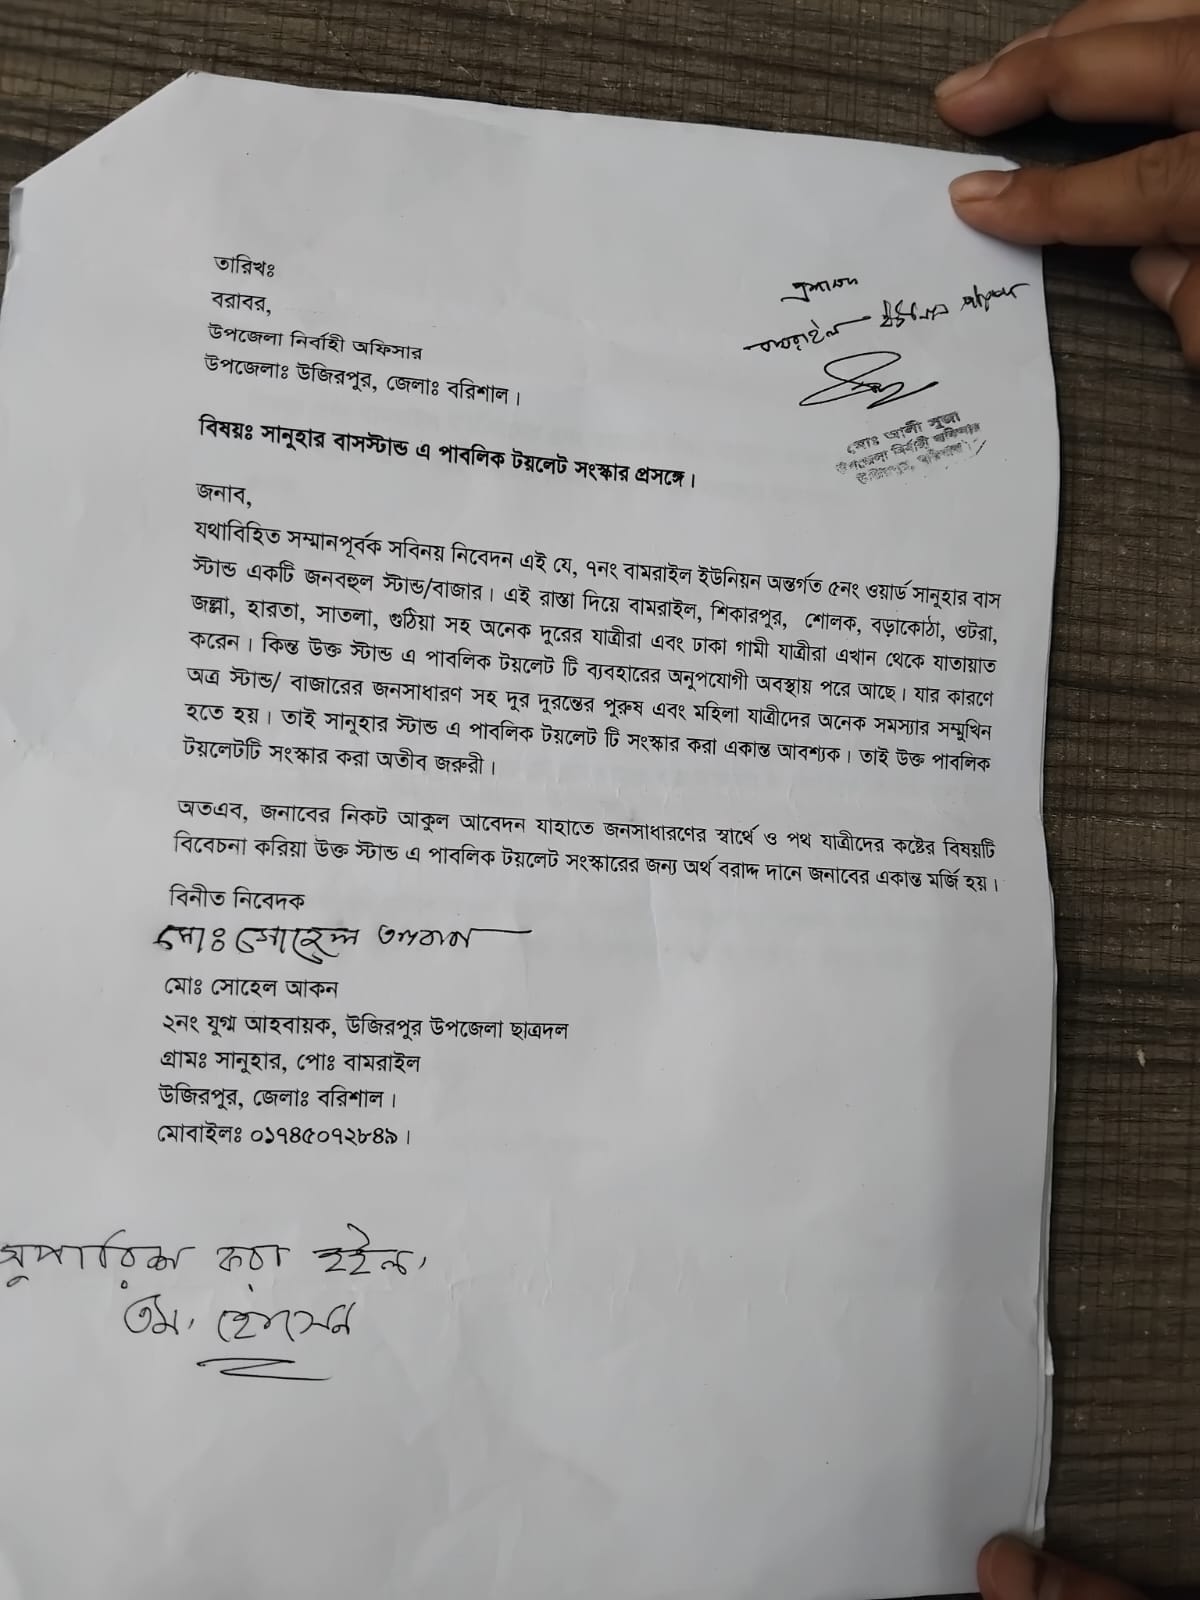 তারিখঃ
বরাবর,
উপজেলা নির্বাহী অফিসার
উপজেলাঃ উজিরপুর, জেলাঃ বরিশাল।
প্রশাসক
বামরাইল ইউনিয়ন পরিষদ
মোঃ আলী সুজা
উপজেলা নির্বাহী অফিসার
উজিরপুর, বরিশাল।
বিষয়ঃ সানুহার বাসস্টান্ড এ পাবলিক টয়লেট সংস্কার প্রসঙ্গে।
জনাব,
যথাবিহিত সম্মানপূর্বক সবিনয় নিবেদন এই যে, ৭নং বামরাইল ইউনিয়ন অন্তর্গত ৫নং ওয়ার্ড সানুহার বাস
স্টান্ড একটি জনবহুল স্টান্ড/বাজার। এই রাস্তা দিয়ে বামরাইল, শিকারপুর, শোলক, বড়াকোঠা, ওটরা,
জল্লা, হারতা, সাতলা, গুঠিয়া সহ অনেক দূরের যাত্রীরা এবং ঢাকা গামী যাত্রীরা এখান থেকে যাতায়াত
করেন। কিন্ত উক্ত স্টান্ড এ পাবলিক টয়লেট টি ব্যবহারের অনুপযোগী অবস্থায় পরে আছে। যার কারণে
অত্র স্টান্ড/ বাজারের জনসাধারণ সহ দুর দুরন্তের পুরুষ এবং মহিলা যাত্রীদের অনেক সমস্যার সম্মুখিন
হতে হয়। তাই সানুহার স্টান্ড এ পাবলিক টয়লেট টি সংস্কার করা একান্ত আবশ্যক। তাই উক্ত পাবলিক
টয়লেটটি সংস্কার করা অতীব জরুরী।
অতএব, জনাবের নিকট আকুল আবেদন যাহাতে জনসাধারণের স্বার্থে ও পথ যাত্রীদের কষ্টের বিষয়টি
বিবেচনা করিয়া উক্ত স্টান্ড এ পাবলিক টয়লেট সংস্কারের জন্য অর্থ বরাদ্দ দানে জনাবের একান্ত মর্জি হয়।
বিনীত নিবেদক
মোঃ সোহেল আকন
মোঃ সোহেল আকন
২নং যুগ্ম আহবায়ক, উজিরপুর উপজেলা ছাত্রদল
গ্রামঃ সানুহার, পোঃ বামরাইল
উজিরপুর, জেলাঃ বরিশাল।
মোবাইলঃ ০১৭৪৫০৭২৮৪৯।
সুপারিশ করা হইল,